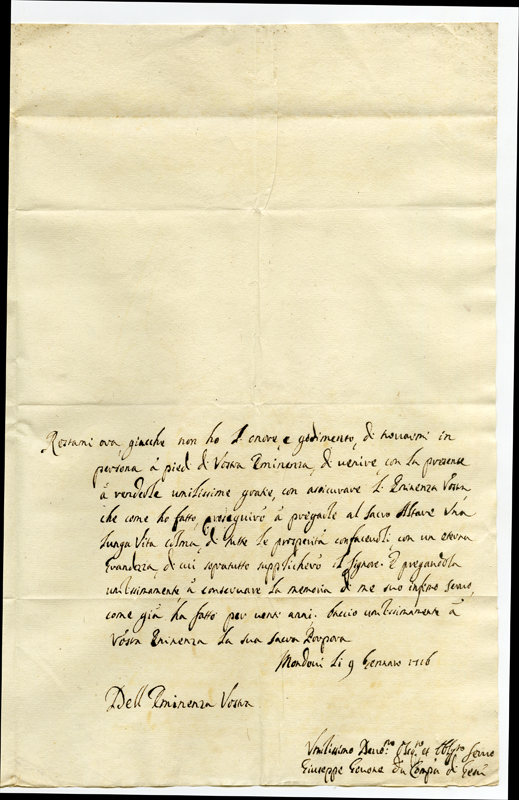 Restami ora, giacche non ho l'onore, e godimento, di trovarmi in
persona à piedi di Vostra Eminenza, di venire, con la presente
à renderle umilissime grazie, con assicurare l'Eminenza Vostra
che come ho fatto, proseguirò à pregarle al sacro Altare una
lunga Vita colma, di tutte le prosperità confacevoli con un eterna
Grandezza, di cui sopratutto supplicherò il Signore. E pregandola
umilissimamente à conservare la memoria di me suo infimo servo,
come già ha fatto per venti anni. baccio umilissimamente à
Vostra Eminenza la sua sacra Porpora
Mondovì li 9 Gennaro 1716
Dell Eminenza Vostra
Umilissimo Devo.mo et Servo
Giuseppe della Comp.a di Gesù